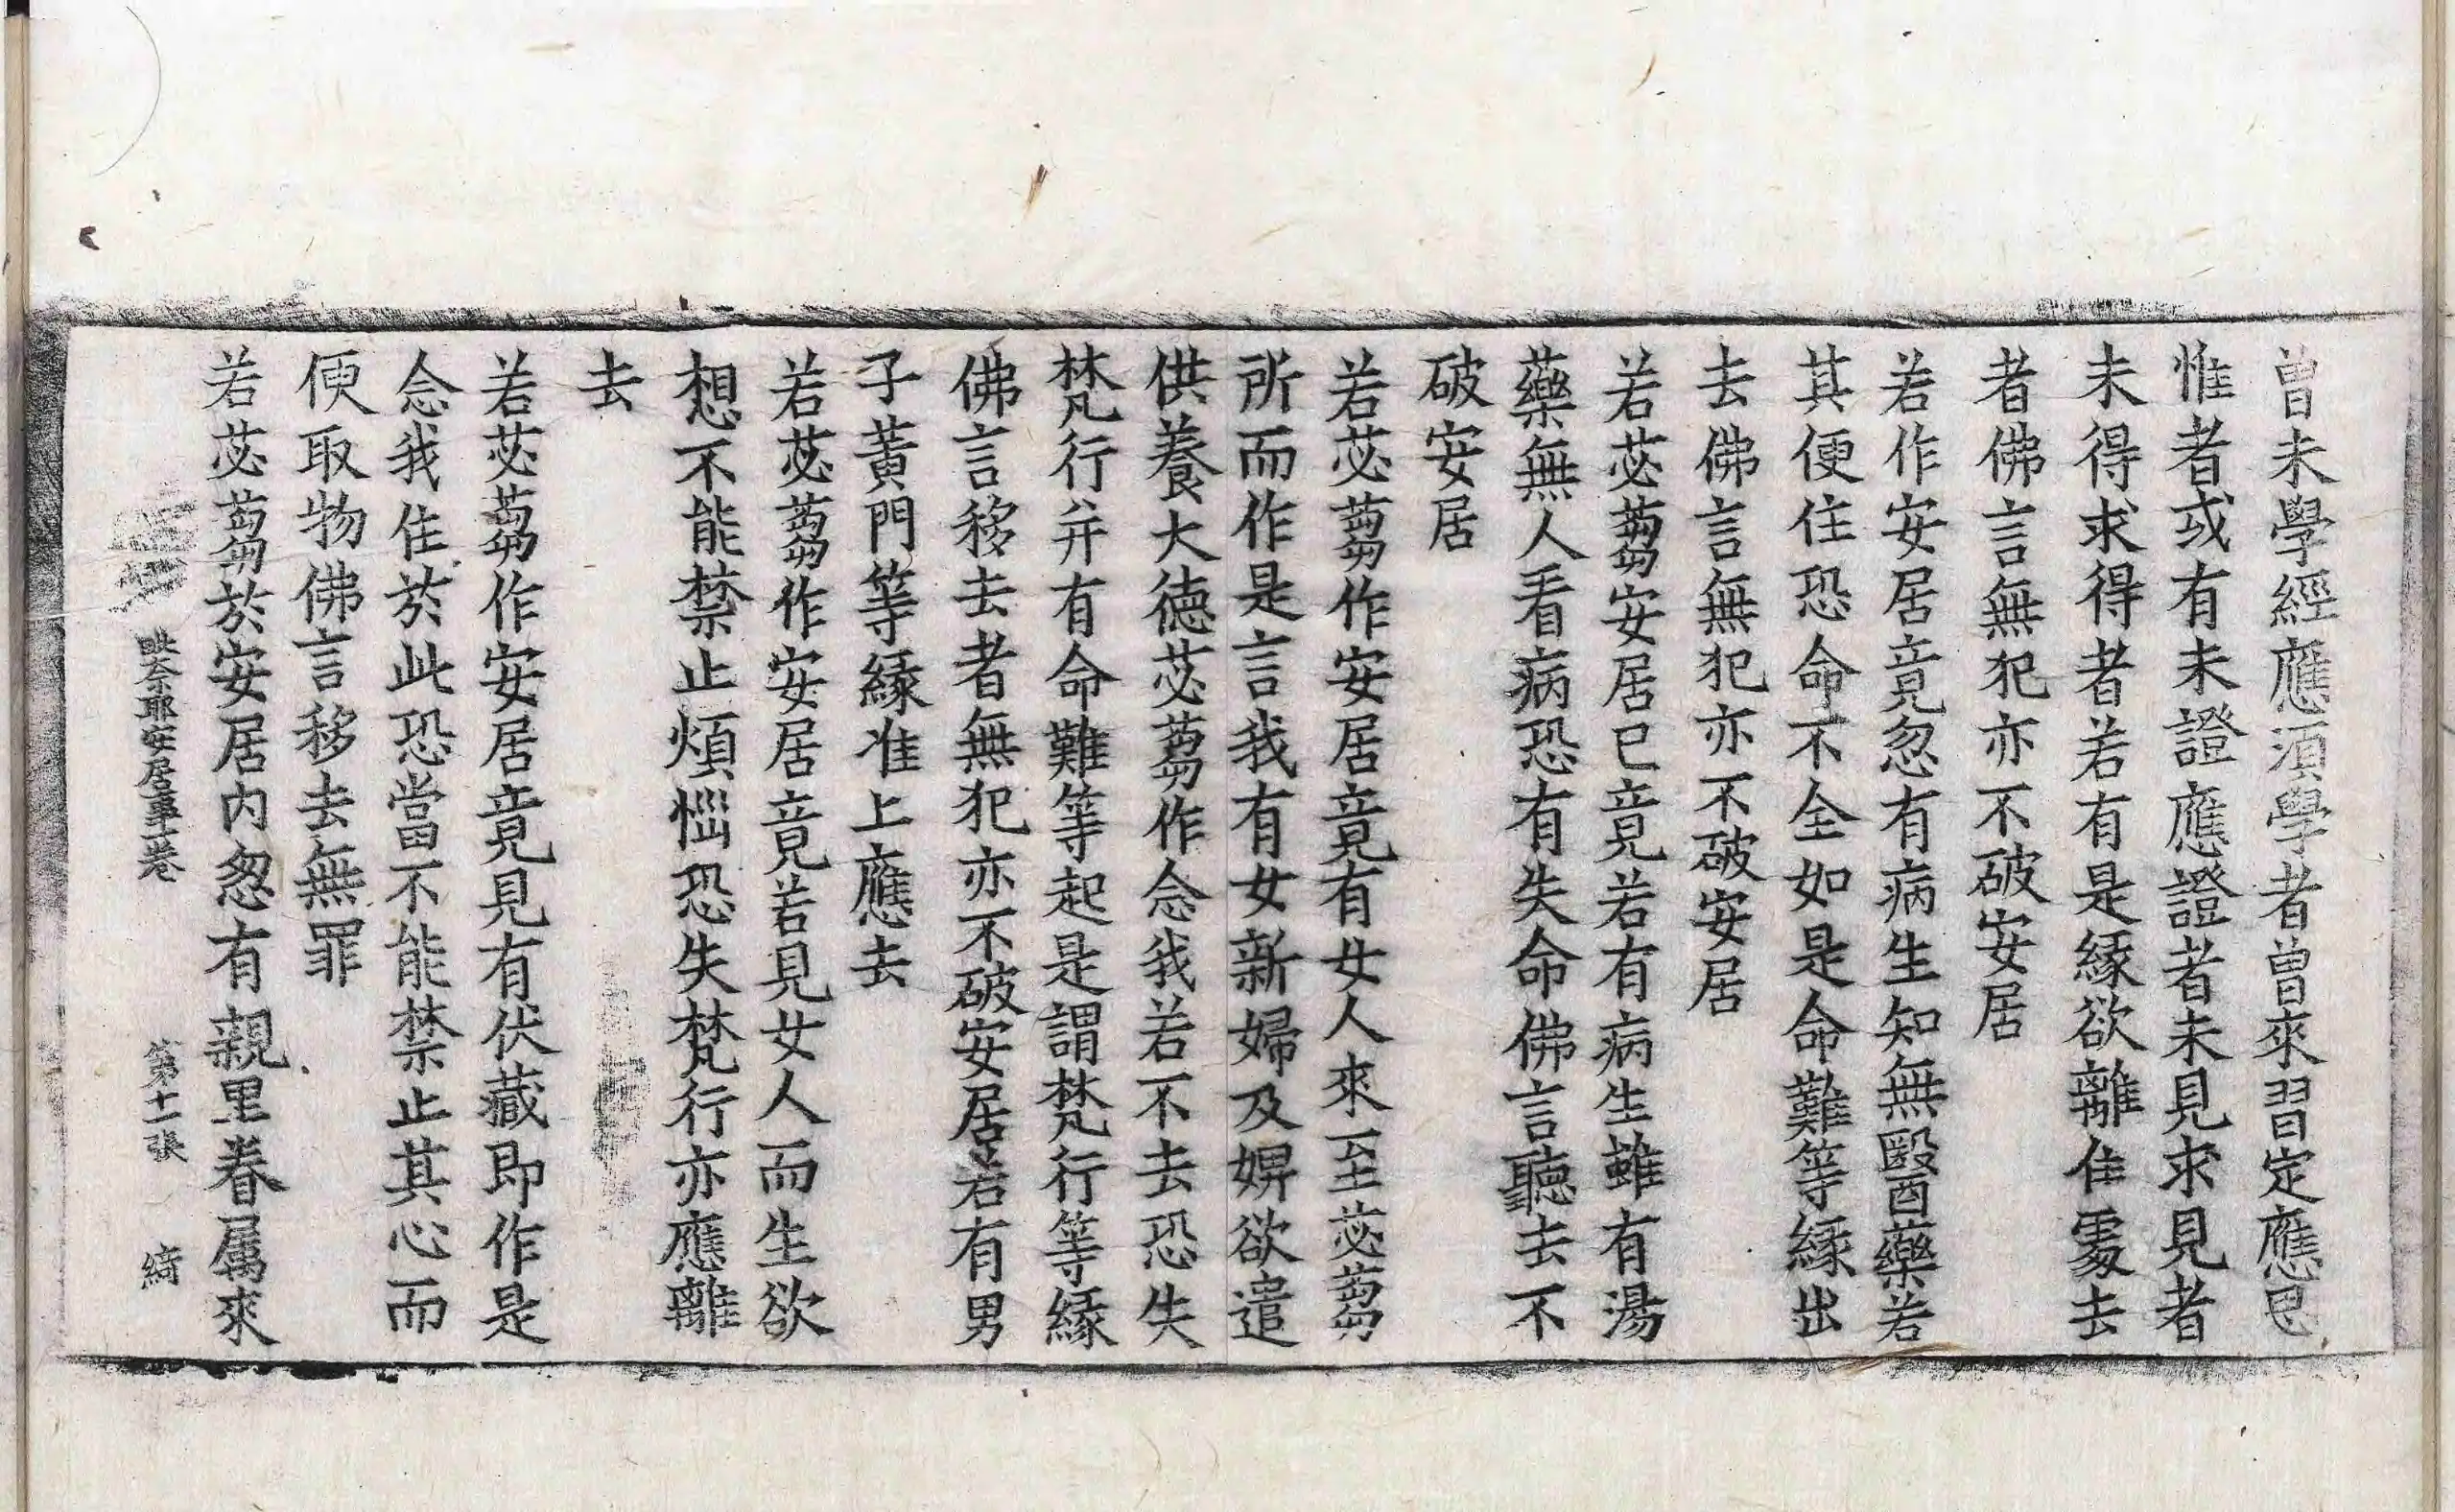 曾未學經應須學者曾來習定應思
惟者或有未證應證者未見求見者
未得求得者若有是緣欲離住處去
者佛言無犯亦不破安居
若作安居竟忽有病生知無醫藥若
其便住恐命不全如是命難等緣出
去佛言無犯亦不破安居
若苾蒭安居已竟若有病生雖有湯
藥無人看病恐有失命佛言聽去不
破安居
若苾蒭作安居竟有女人來至苾蒭
所而作是言我有女新婦及婢欲遣
供養大德苾蒭作念我若不去恐失
梵行并有命難等起是謂梵行等緣
佛言移去者無犯亦不破安居若有男
子黃門等緣准上應去
若苾蒭作安居竟若見女人而生欲
想不能禁止煩惱恐失梵行亦應離
去
若苾蒭作安居竟見有伏藏即作是
念我住於此恐當不能禁止其心而
便取物佛言移去無罪
若苾蒭於安居內忽有親里眷屬來
毗奈耶安居事一卷 第十一張 綺